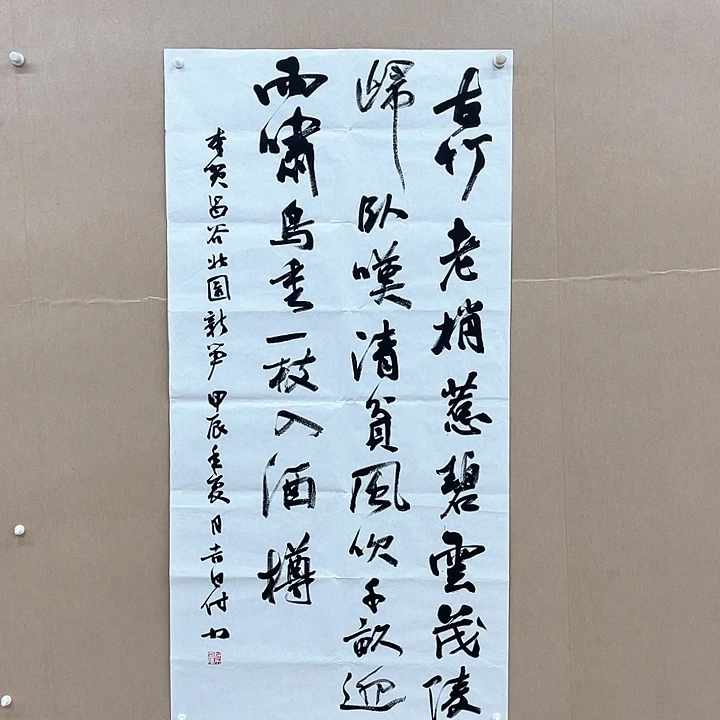 古竹老梢惹碧雲茂陵
歸臥嘆清貧風吹千畝迎
雨嘯鳥重一枝入酒樽
李賀昌谷北園新笋 甲辰年夏月吉日付书